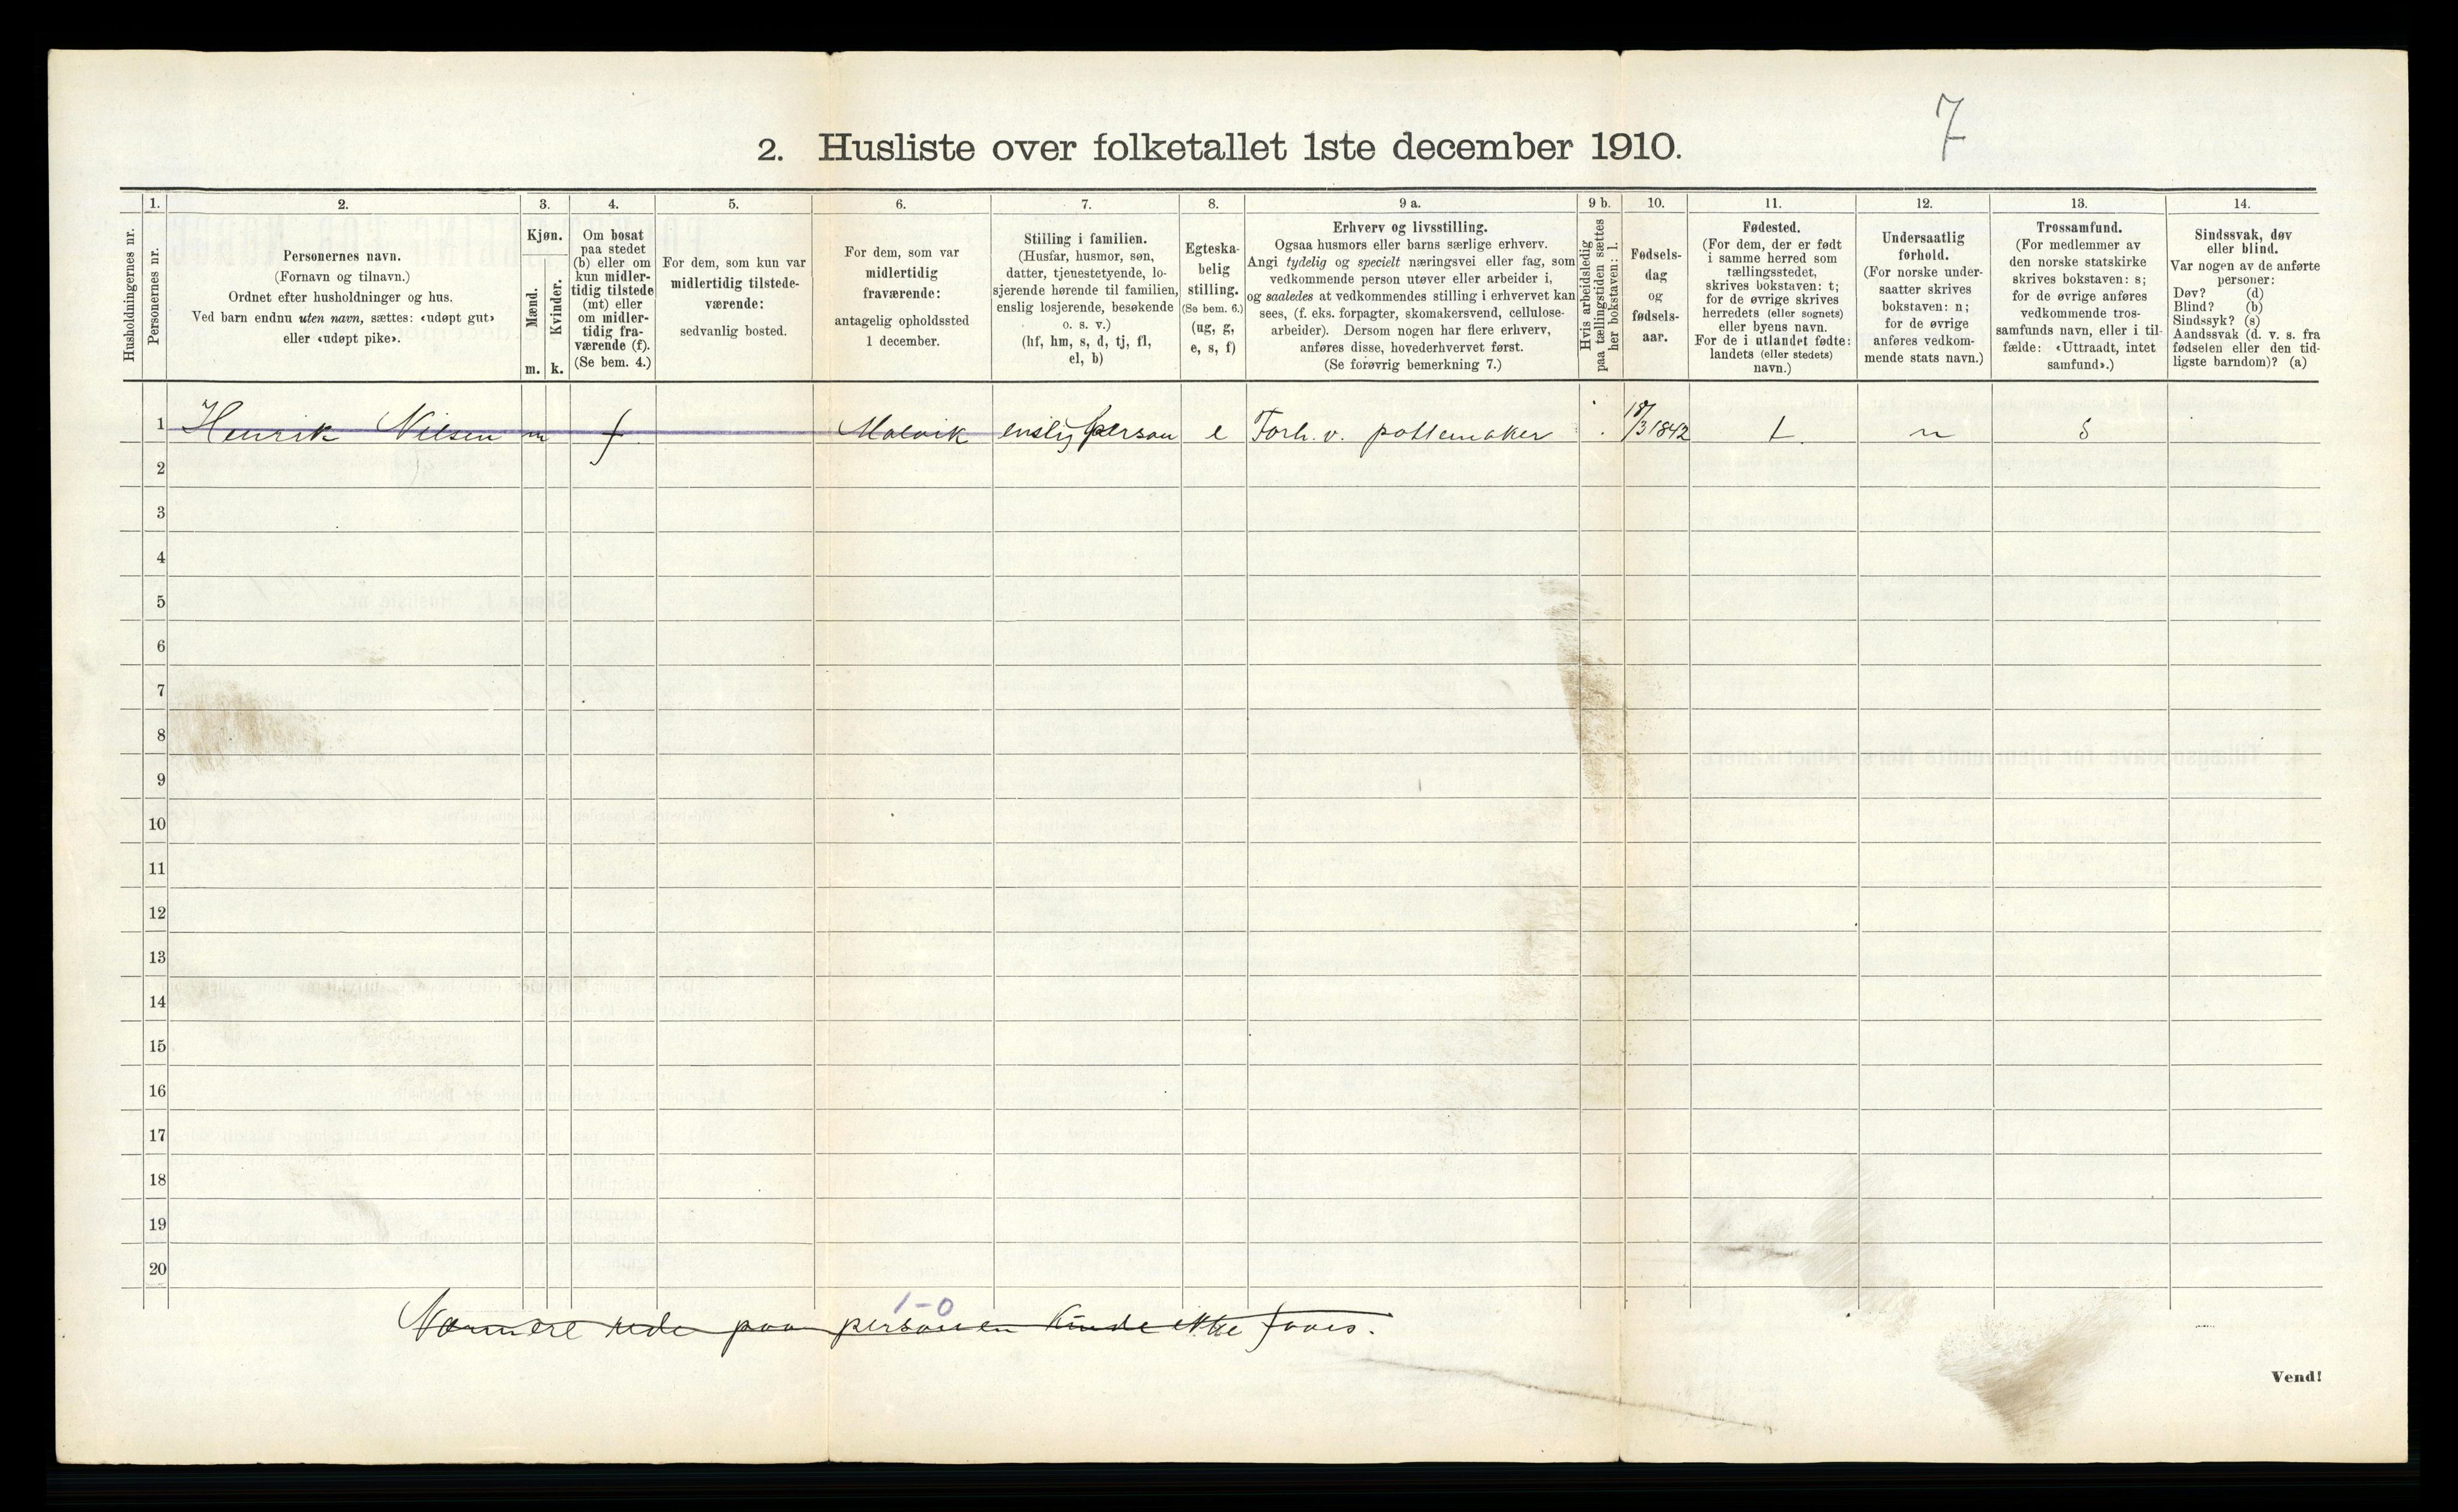 7
2. Husliste over folketallet 1ste december 1910.
Husholdningernes nr.
1.
Personernes nr.
2.
Personernes navn.
(Fornavn og tilnavn.)
Ordnet efter husholdninger og hus.
Ved barn endnu uten navn, sættes: «udøpt gut»
eller «udøpt pike».
3.
Kjøn.
Mænd.
Kvinder.
m.
k.
4.
Om bosat
paa stedet
(b) eller om
kun midler-
tidig tilstede
(mt) eller
om midler-
tidig fra-
værende (f).
(Se bem. 4.)
5.
For dem, som kun var
midlertidig tilstede-
værende:
sedvanlig bosted.
6.
For dem, som var
midlertidig
fraværende:
antagelig opholdssted
1 december.
7.
Stilling i familien.
(Husfar, husmor, søn,
datter, tjenestetyende, lo-
sjerende hørende til familien,
enslig losjerende, besøkende
o. s. v.)
(hf, hm, s, d, tj, fl,
el, b)
8.
Egteska-
belig
stilling.
(Se bem. 6.)
(ug, g,
e, s, f)
9 a.
Erhverv og livsstilling.
Ogsaa husmors eller barns særlige erhverv.
Angi tydelig og specielt næringsvei eller fag, som
vedkommende person utøver eller arbeider i,
og saaledes at vedkommendes stilling i erhvervet kan
sees, (f. eks. forpagter, skomakersvend, cellulose-
arbeider). Dersom nogen har flere erhverv,
anføres disse, hovederhvervet først.
(Se forøvrig bemerkning 7.)
9 b.
Hvis arbeidsledig
paa tællingstiden sættes
her bokstaven: l.
10.
Fødsels-
dag
og
fødsels-
aar.
11.
Fødested.
(For dem, der er født
i samme herred som
tællingsstedet,
skrives bokstaven: t;
for de øvrige skrives
herredets (eller sognets)
eller byens navn.
For de i utlandet fødte:
landets (eller stedets)
navn.)
12.
Undersaatlig
forhold.
(For norske under-
saatter skrives
bokstaven: n;
for de øvrige
anføres vedkom-
mende stats navn.)
13.
Trossamfund.
(For medlemmer av
den norske statskirke
skrives bokstaven: s;
for de øvrige anføres
vedkommende tros-
samfunds navn, eller i til-
fælde: «Uttraadt, intet
samfund».)
14.
Sindssvak, døv
eller blind.
Var nogen av de anførte
personer:
Døv? (d)
Blind? (b)
Sindssyk? (s)
Aandssvak (d. v. s. fra
fødselen eller den tid-
ligste barndom)? (a)
1 Henrik Nilsen m f Malvik enslig person e Forh. v. pottemaker 18/3 1842 t n s
2
3
4
5
6
7
8
9
10
11
12
13
14
15
16
17
18
19
20
1-0
Nærmere rede paa personen kunde ikke faaes.
Vend!